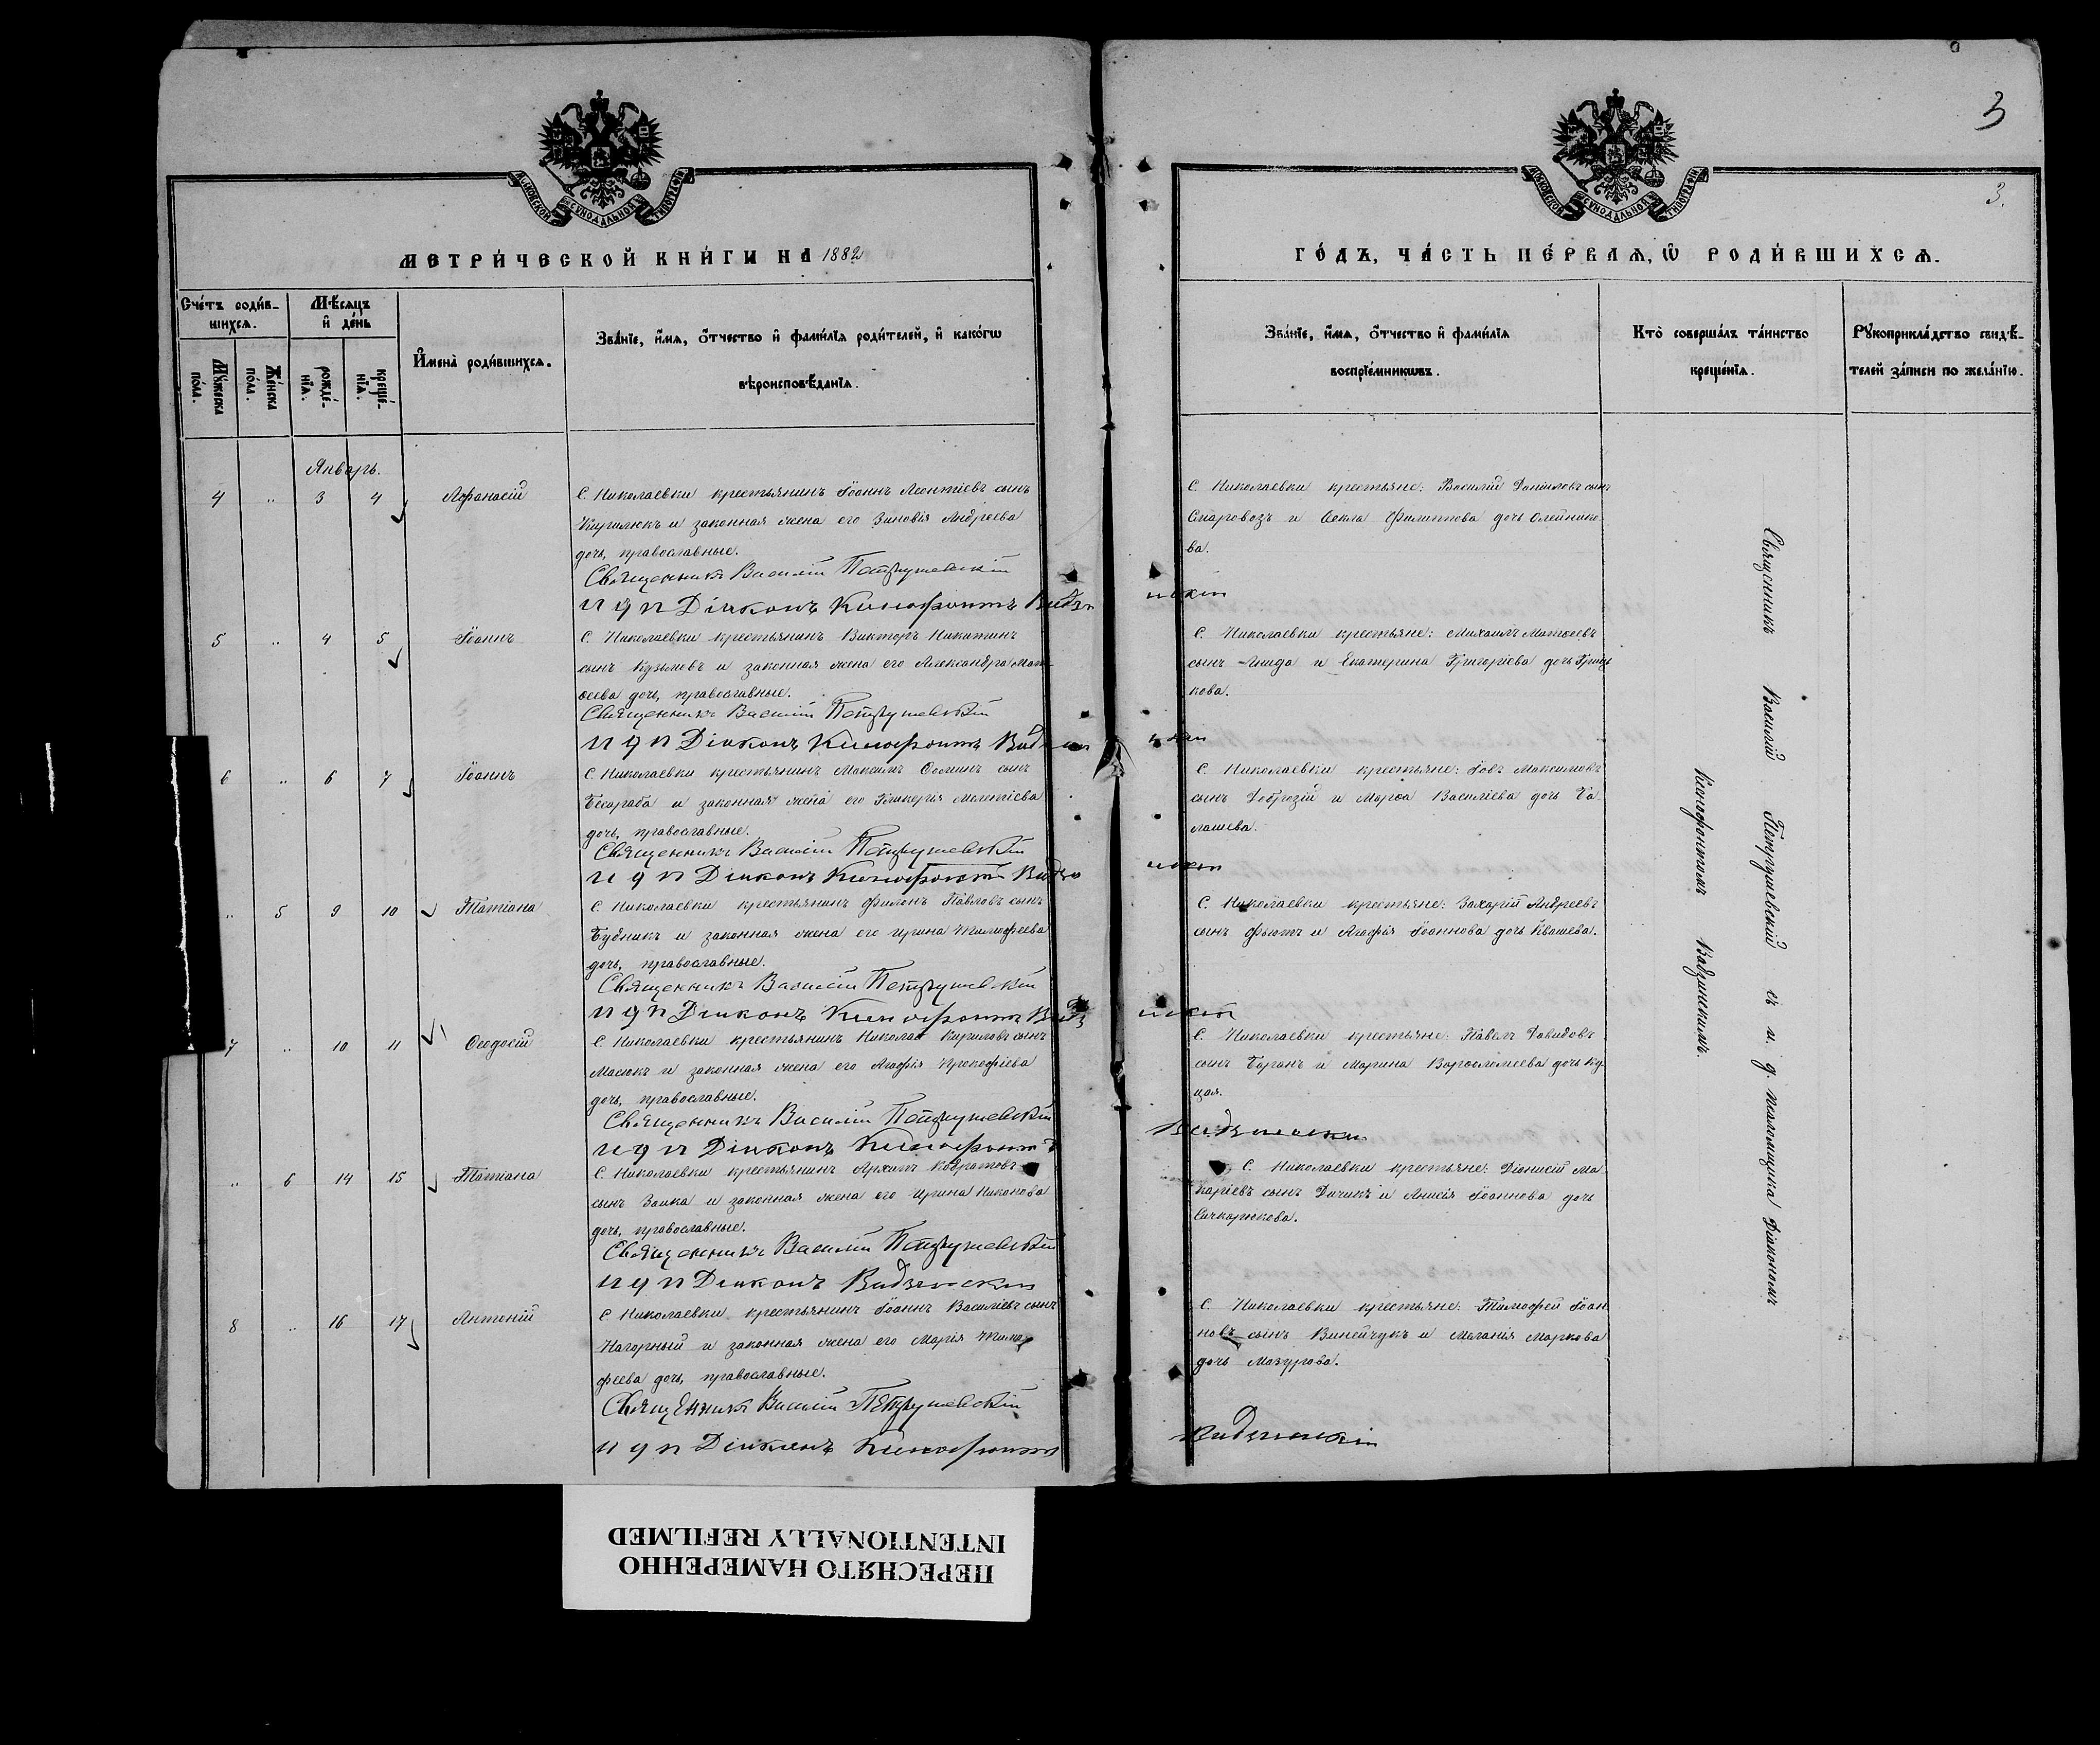 3
МОСКОВСКОЙ СУНОДАЛЬНОЙ ТИПОГРАФІИ
МОСКОВСКОЙ СУНОДАЛЬНОЙ ТИПОГРАФІИ
3.
МЕТРИ́ЧЕСКОЙ КНИ́ГИ НА 1882
ГО́ДЪ, ЧА́СТЬ ПЕ́РВАѦ, Ѽ РОДИ́ВШИХСѦ.
Сче́тъ роди́в-
шихсѧ.
Мꙋ́жеска по́ла.
Же́нска по́ла.
М́ѣсѧцъ
и҆ де́нь
рожде́-
нїѧ.
креще́-
нїѧ.
И҆мена̀ роди́вшихсѧ.
Зва́нїе, и҆́мѧ, ѻ҆́тчество и҆ фами́лїѧ роди́телей, и҆ како́гѡ
вѣроисповѣ́данїѧ.
Зва́нїе, и҆́мѧ, ѻ҆́тчество и҆ фами́лїѧ
воспрїе́мникѡвъ.
Кто̀ соверша́лъ та́инство
креще́нїѧ.
Рꙋкоприкла́дство свидѣ́-
телей за́писи по жела́нїю.
Январь.
4 „ 3 4 Афанасій
С. Николаевки крестьянинъ Іоаннъ Леонтіевъ сынъ
Кирилюкъ и законная жена его Зиновія Андреева
дочь, православные.
Священникъ Василій Петрушевскій
и д п Діаконъ Ксенофонтъ
С. Николаевки крестьяне: Василій Даниловъ сынъ
Старовозъ и Ѳекла Филиппова дочь Олейнико-
ва.
5 „ 4 5 Іоаннъ
С. Николаевки крестьянинъ Викторъ Никитинъ
сынъ Кузьмовъ и законная жена его Александра Мат-
ѳеева дочь, православные.
Священникъ Василій Петрушевскій
и д п Діаконъ Ксенофонтъ
С. Николаевки крестьяне: Михаилъ Матѳеевъ
сынъ и Екатерина Григоріева дочь Гриць-
кова.
6 „ 6 7 Іоаннъ
С. Николаевки крестьянинъ Максимъ Ѳоминъ сынъ
Бесараба и законная жена его Гликерія Мелетіева
дочь, православные.
Священникъ Василій Петрушевскій
и д п Діаконъ Ксенофонтъ
С. Николаевки крестьяне: Іовъ Максимовъ
сынъ и Марѳа Василіева дочь Ба-
лашева.
„ 5 9 10 Татіана
С. Николаевки крестьянинъ Филонъ Павловъ сынъ
Будникъ и законная жена его Ирина Тимофеева
дочь, православные.
Священникъ Василій Петрушевскій
и д п Діаконъ Ксенофонтъ
С. Николаевки крестьяне: Захарій Андреевъ
сынъ и Агафія Іоаннова дочь Квашева.
7 „ 10 11 Ѳеодосій
С. Николаевки крестьянинъ Николай Кириловъ сынъ
Масюкъ и законная жена его Агафія Прокофіева
дочь, православные.
Священникъ Василій Петрушевскій
и д п Діаконъ Ксенофонтъ
С. Николаевки крестьяне: Павелъ Давидовъ
сынъ Баранъ и Марина Варѳоломеева дочь Ку-
цая.
„ 6 14 15 Татіана
С. Николаевки крестьянинъ Архипъ Кодратовъ
сынъ Заика и законная жена его Ирина Никонова
дочь, православные.
Священникъ Василій Петрушевскій
и д п Діаконъ
С. Николаевки крестьяне: Діонисій Ма-
каріевъ сынъ Дичикъ и Анисія Іоаннова дочь
Сичкарюкова.
8 „ 16 17 Антоній
С. Николаевки крестьянинъ Іоаннъ Василіевъ сынъ
Нагорный и законная жена его Марія Тимо-
феева дочь, православные.
Священникъ Василій Петрушевскій
и д п Діаконъ Ксенофонтъ
С. Николаевки крестьяне: Тимофей Іоан-
новъ сынъ Винейчукъ и Меланія Маркова
дочь Мазурова.
Священникъ Василій Петрушевскій съ и. д. псаломщика Діакономъ
Ксенофонтомъ
ПЕРЕСНЯТО НАМЕРЕННО
INTENTIONALLY REFILMED